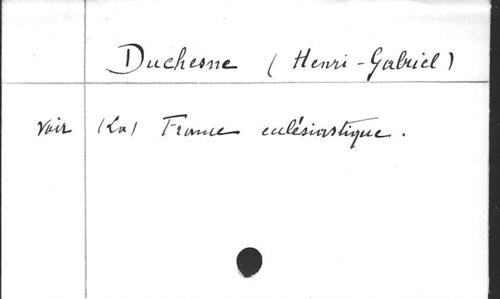 Duchesne (Henri-Gabriel)
voir (La) France ecclésiastique.